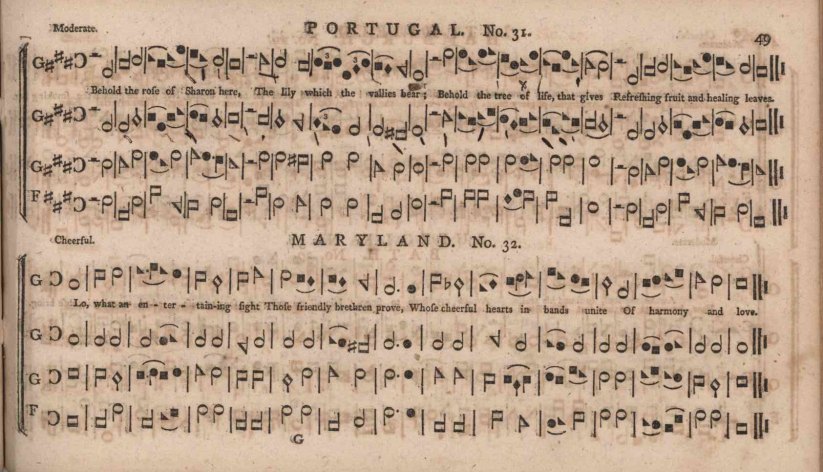 Moderate. PORTUGAL. No. 31. 49
Behold the roſe of Sharon here, The lily which the vallies bear; Behold the tree of life, that gives Refreſhing fruit and healing leaves.
G
G
G
F
Cheerful. MARYLAND. No. 32.
G
Lo, what an en - ter - tain-ing ſight Thoſe friendly brethren prove, Whoſe cheerful hearts in bands unite Of harmony and love.
G
G
F
G